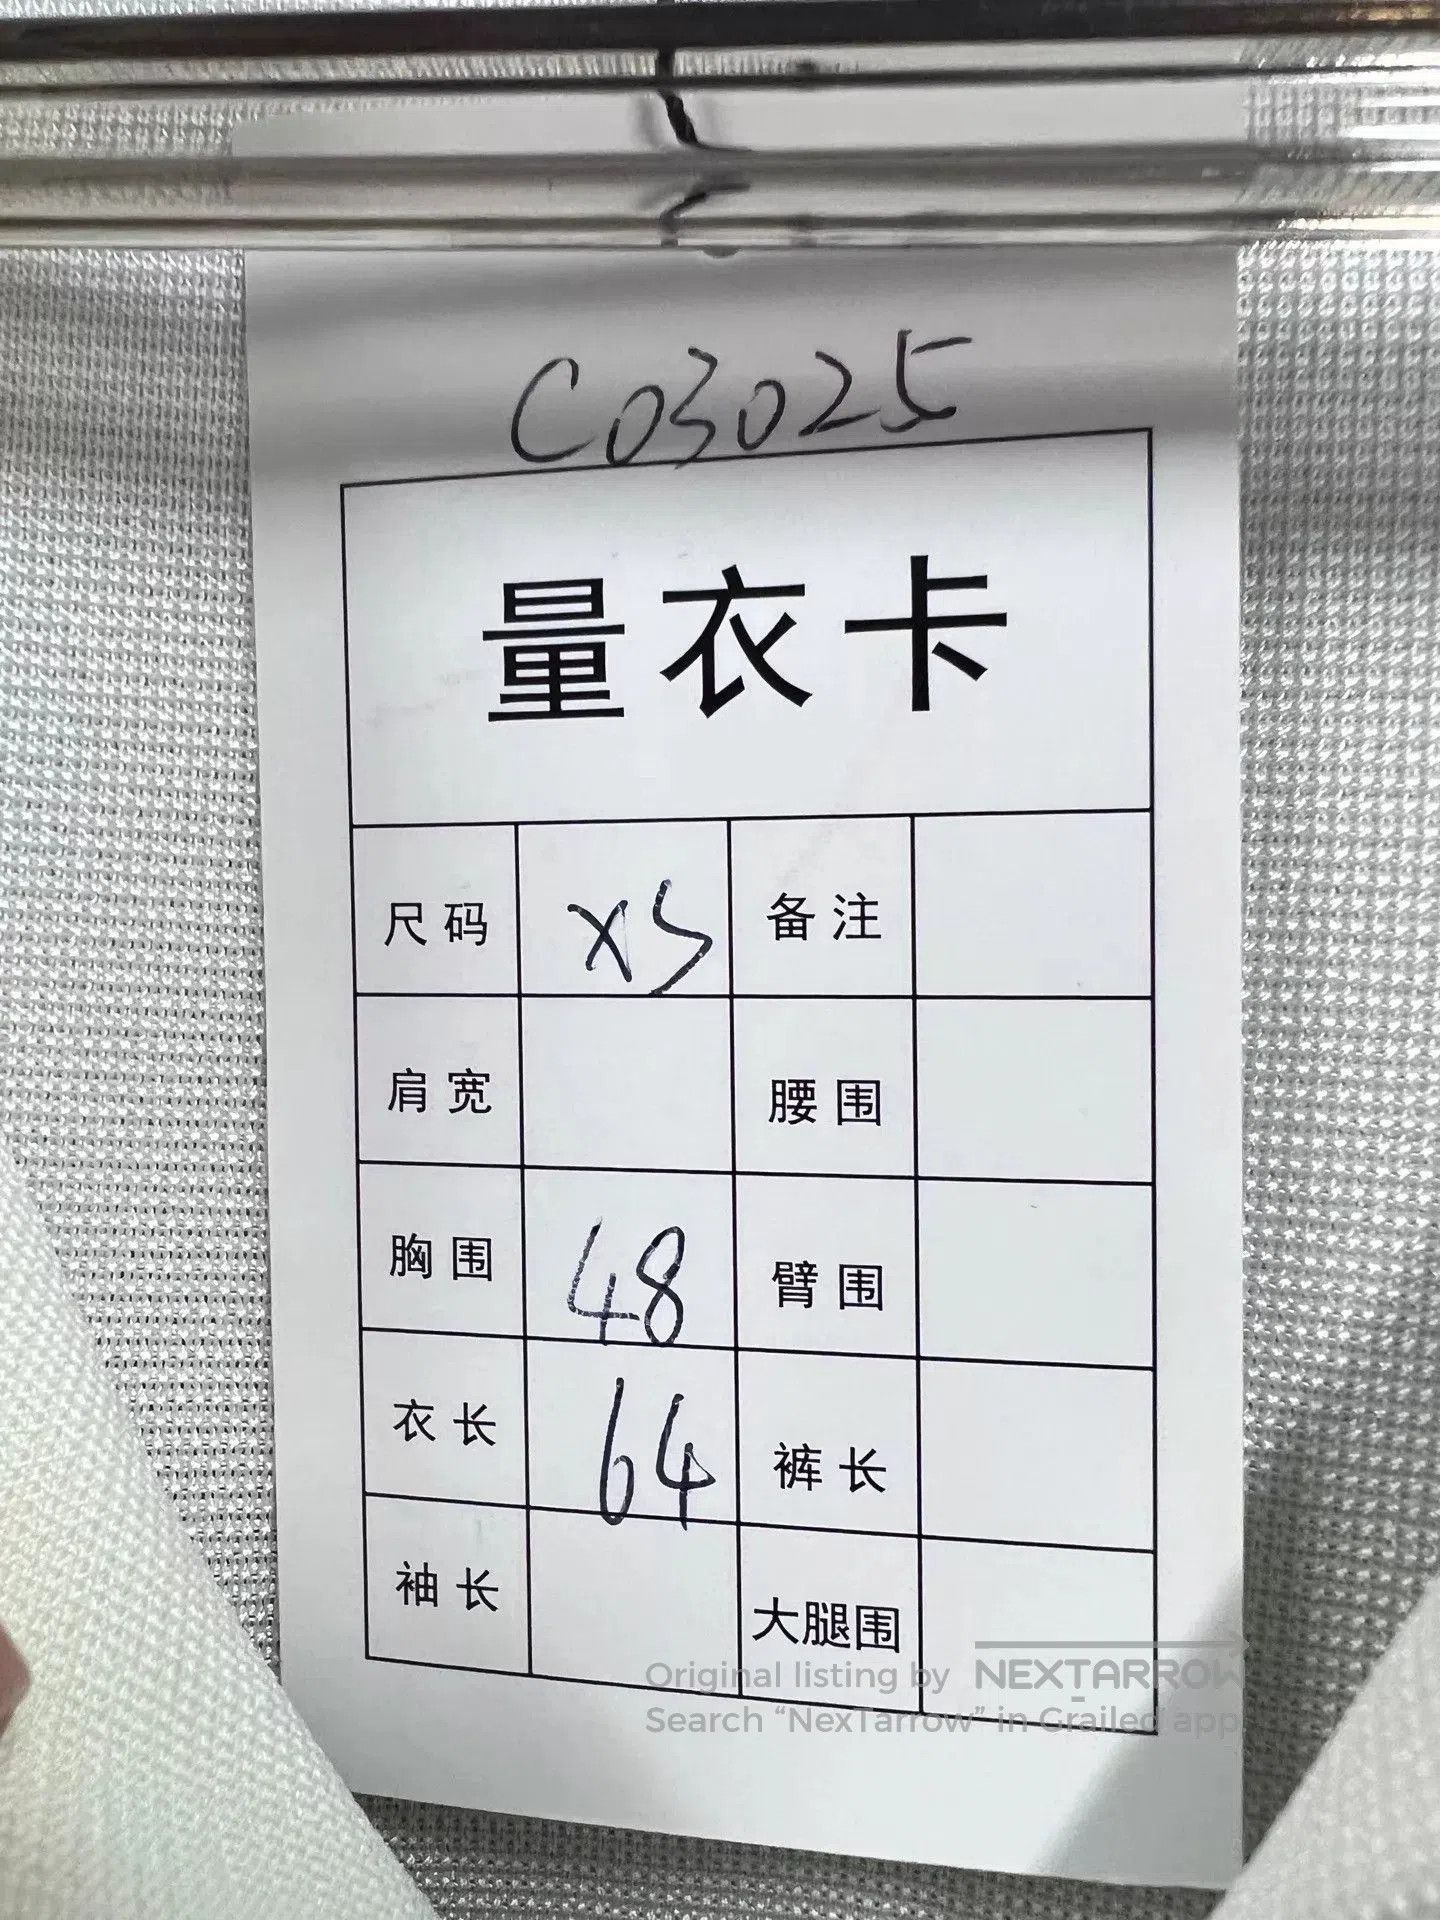 C03025
量衣卡
尺码 XS 备注
肩宽 腰围
胸围 48 臂围
衣长 64 裤长
袖长 大腿围
Original listing by NEXTARROW
Search “NexTarrow” in Grailed app